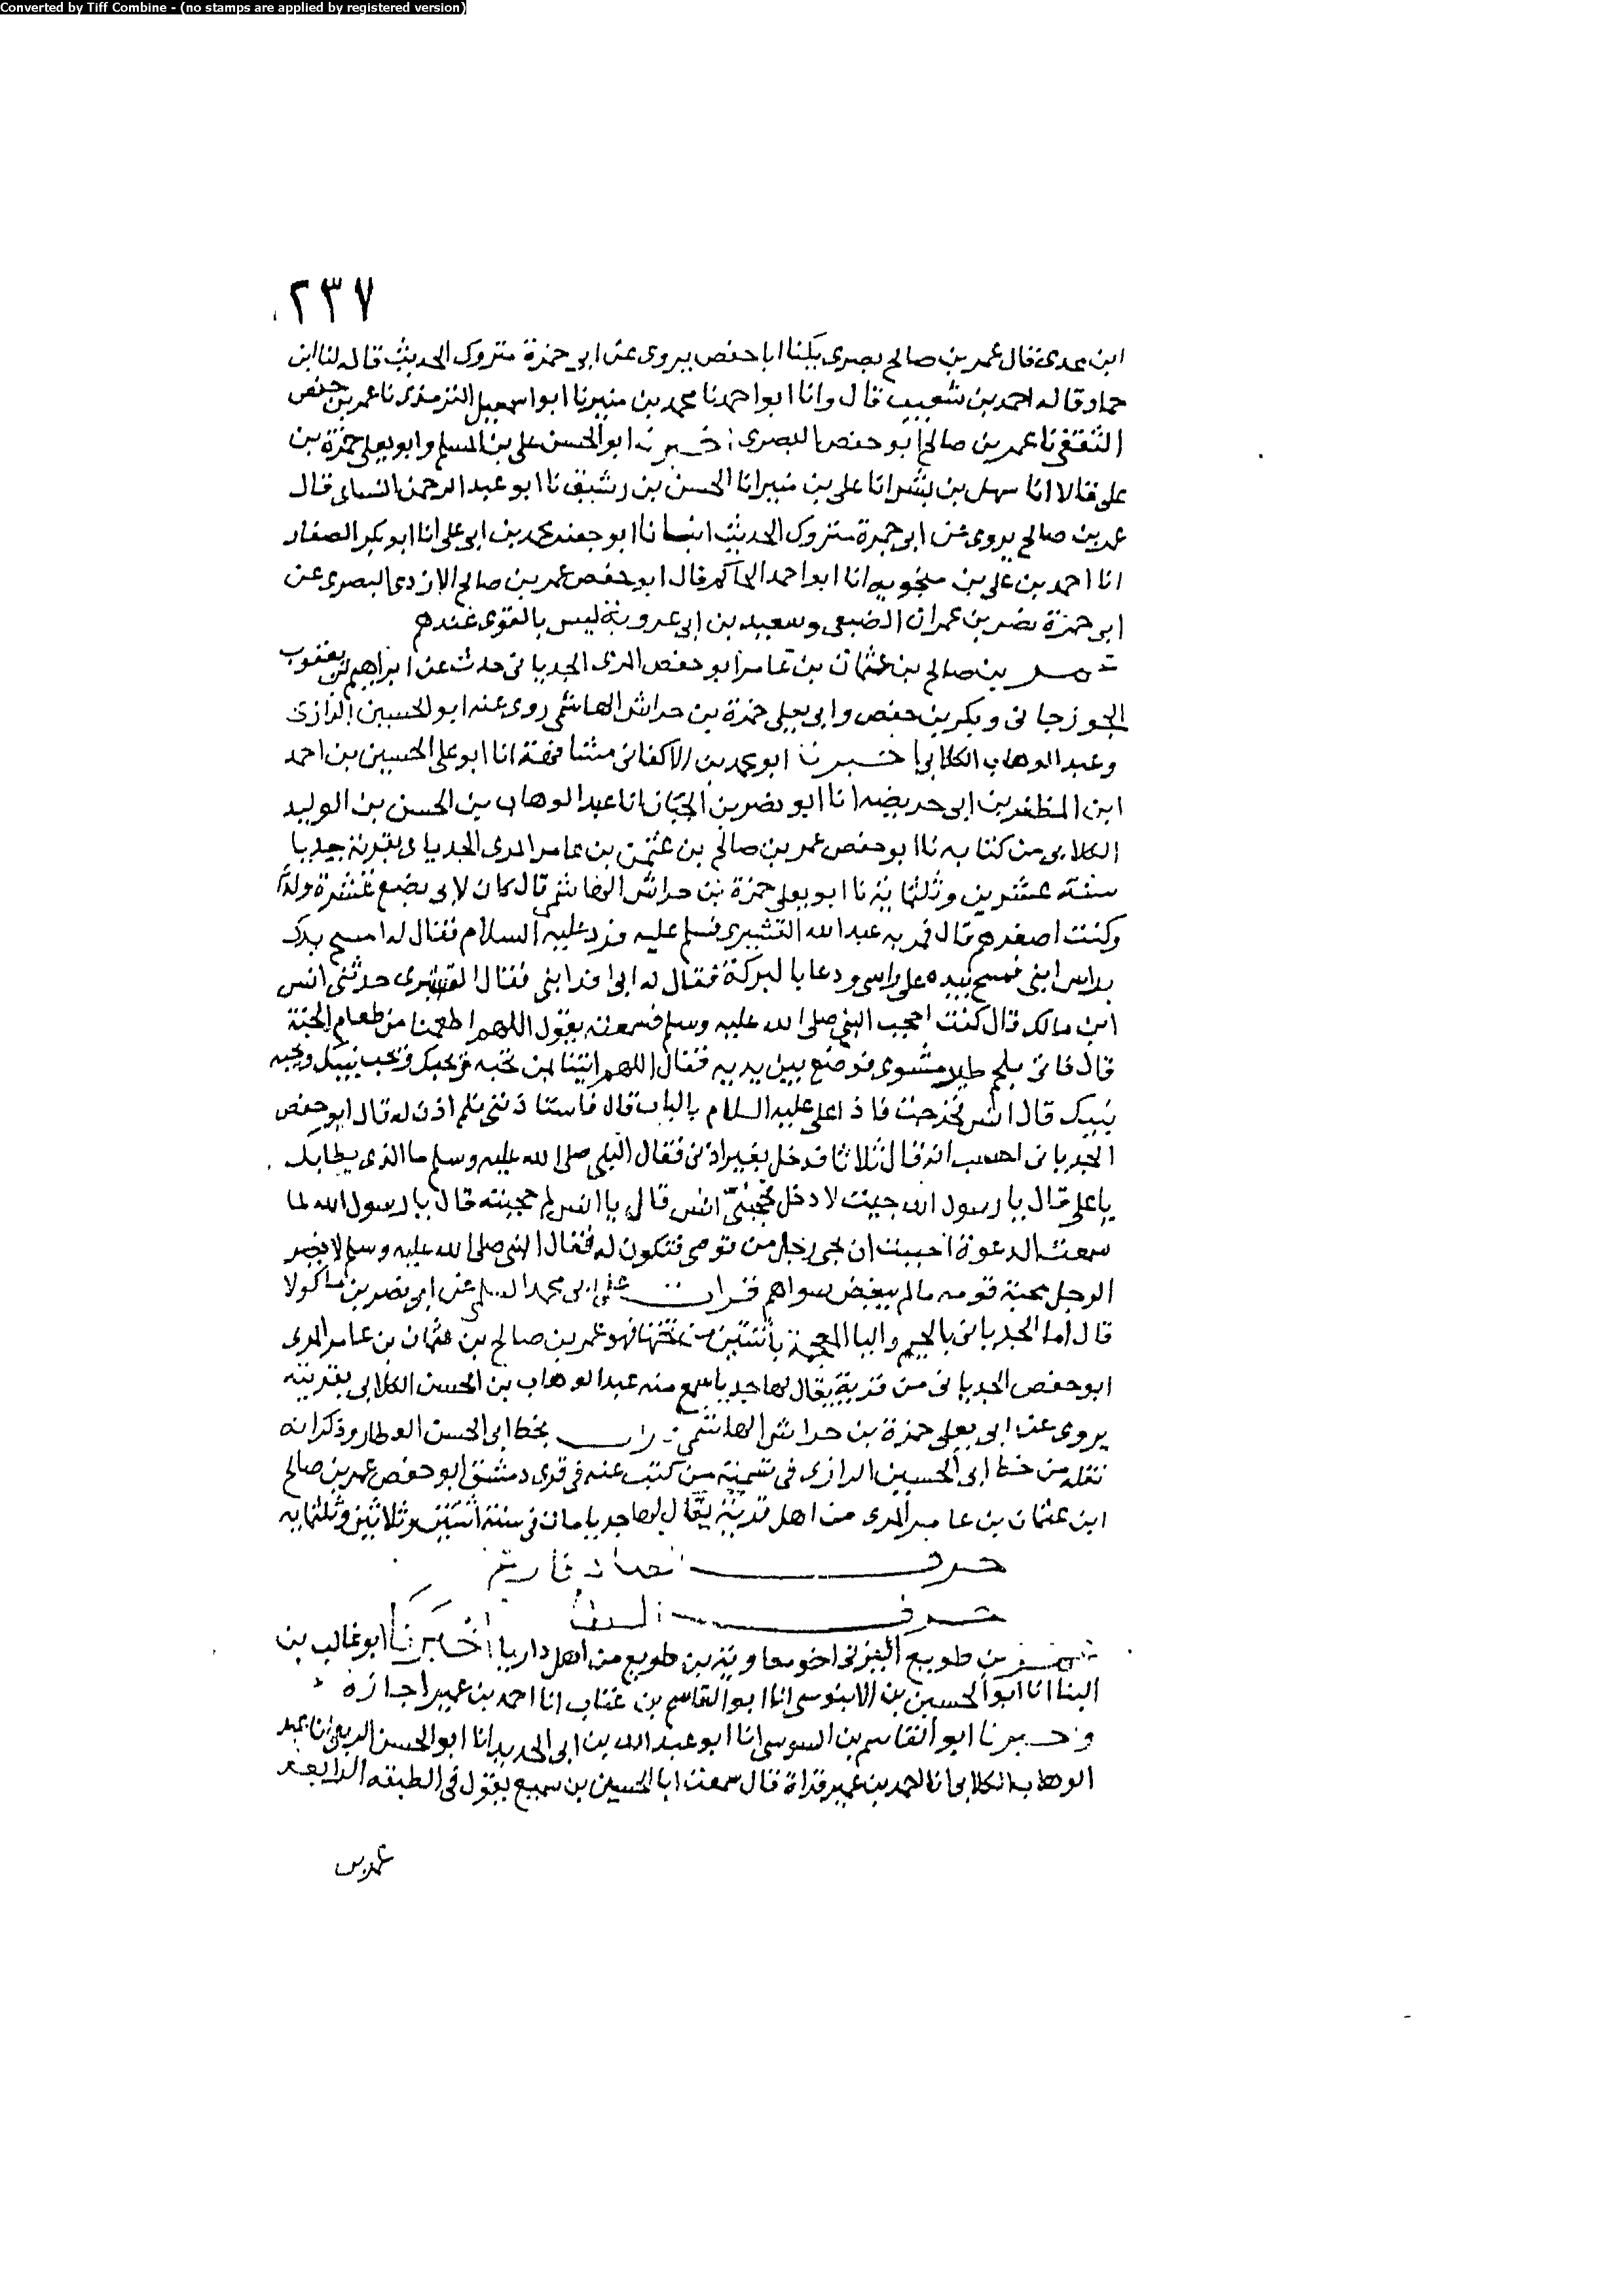 Converted by Tiff Combine - (no stamps are applied by registered version)
٢٣٧
ابن عدى قال عمر بن صالح بصرى يكنا ابا حفص يروى عن ابى حمزة متروك الحديث قاله لنا ابن
حماد قاله احمد بن شعيب قال وانا ابو احمد نا محمد بن منير نا ابو اسمعيل الترمذى نا عمر بن حفص
الثقفى نا عمر بن صالح ابو حفص البصرى اخبرنا ابو الحسن على بن المسلم وابو يعلى حمزة بن
على قالا انا سهل بن بشر انا على بن منير انا الحسن بن رشيق نا ابو عبد الرحمن النساى قال
عمر بن صالح يروى عن ابى حمزة متروك الحديث انبانا ابو جعفر محمد بن ابى على انا ابو بكر الصفار
انا احمد بن على بن منجويه انا ابو احمد الحاكم قال ابو حفص عمر بن صالح الازدى البصرى عن
ابى حمزة نصر بن عمران الضبعى وسعيد بن ابى عروبة ليس بالقوى عندهم
عمر بن صالح بن عثمان بن عامر ابو حفص المرى الجديانى حدث عن ابراهيم بن يعقوب
الجوزجانى وبكر بن حفص وابى يعلى حمزة بن خراش الهاشمى روى عنه ابو الحسين الرازى
وعبد الوهاب الكلابى اخبرنا ابو محمد بن الاكفانى مشافهة انا ابو على الحسين بن احمد
ابن المظفر بن ابى حريصه انا ابو نصر بن الجبان انا عبد الوهاب بن الحسن بن الوليد
الكلابى من كتابه نا ابو حفص عمر بن صالح بن عثمن بن عامر المرى الجديانى بقرية جديا
سنة عشرين وثلثماية نا ابو يعلى حمزة بن خراش الهاشمى قال كان لابى بضع عشرة ولدا
وكنت اصغرهم قال فمر به عبد الله القشيرى فسلم عليه فرد عليه السلام فقال له امسح يدك
براس ابنى فمسح بيده على راسى ودعا بالبركة فقال له ابى افد ابنى فقال القشيرى حدثنى انس
ابن مالك قال كنت احجب النبى صلى الله عليه وسلم فسمعته يقول اللهم اطعمنا من طعام الجنة
قال فاتى بلحم طير مشوى فوضع بين يديه فقال اللهم ايتينا بمن تحبه ويحبك ويحب نبيك ويحبه
نبيك قال انس فخرجت فاذا على عليه السلام بالباب قال فاستاذننى فلم اذن له قال ابو حفص
الجديانى احسب انه قال ثلاثا فدخل بغير اذنى فقال النبى صلى الله عليه وسلم ما الذى بطابك
يا على قال يا رسول الله جيت لادخل فحجبنى انس قال يا انس لم حجبته قال يا رسول الله لما
سمعت الدعوة احببت ان يجى رجل من قومى فتكون له فقال النبى صلى الله عليه وسلم لا يضر
الرجل محبة قومه ما لم يبغض سواهم قرات على ابى محمد السلمى عن ابى نصر بن ماكولا
قال اما الجديانى بالجيم واليا المعجمة باثنتين من تحتها فهو عمر بن صالح بن عثمان بن عامر المرى
ابو حفص الجديانى من قرية يقال لها جديا سمع منه عبد الوهاب بن الحسن الكلابى بقريته
يروى عن ابى يعلى حمزة بن خراش الهاشمى قرات بخط ابى الحسن العطار وذكر انه
نقله من خط ابى الحسين الرازى فى تسمية من كتب عنه فى قرى دمشق ابو حفص عمر بن صالح
ابن عثمان بن عامر المرى من اهل قرية يقال لها جديا مات فى سنة اثنتين وثلاثين وثلثمايه
حرف الضاد فارغ
حرف الطاء
عمر بن طويع اليزنى اخو معاوية بن طويع من اهل داريا اخبرنا ابو غالب بن
البنا انا ابو الحسين بن الابنوسى انا ابو القاسم بن عتاب انا احمد بن عمير اجازة
واخبرنا ابو القاسم بن السوسى انا ابو عبد الله بن ابى الحديد انا ابو الحسن الربعى انا عبد
الوهاب الكلابى انا احمد بن عمير قراة قال سمعت ابا الحسين بن سميع يقول فى الطبقه الرابعة
عمر بن